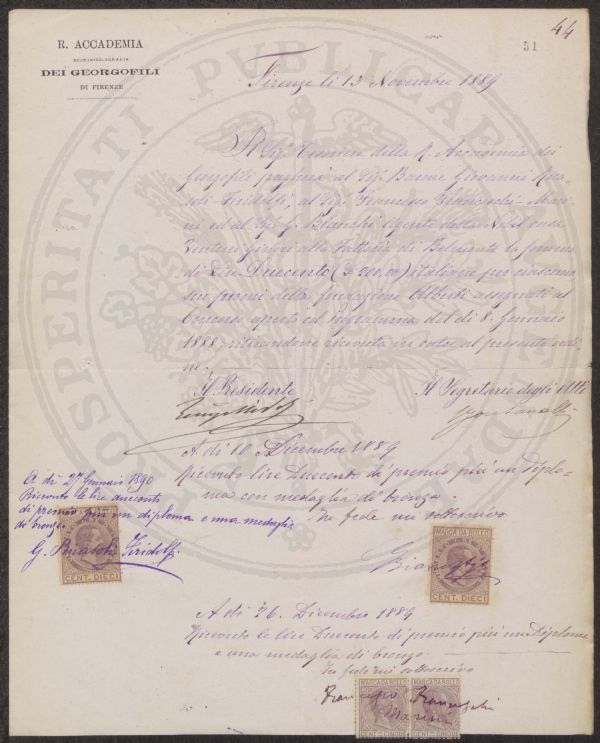 44
51
R. ACCADEMIA
ECONOMICO-AGRARIA
DEI GEORGOFILI
DI FIRENZE
Firenze li 13 Novembre 1889
Il Sig. Tesoriere della R. Accademia dei
Georgofili pagherà al Sig. Barone Giovanni Rua-
soli Firidolfi, al Sig. Francesco Franceschi Mari-
ni ed al Sig. G. Bianchi Agente della Nobil casa
alla fattoria di Belmonte la somma
di Lire Duecento (£ 200,00) italiane per ciascuno
sui premi della fondazione Alberti assegnati al
Concorso aperto col Programma del dì 8 Gennaio
1888, ritirandone ricevuta in calce al presente ordi-
ne.
Il Presidente Il Segretario degli Atti
A di 10 Dicembre 1889
Ricevuto lire Duecento di premio più un Diplo-
ma con medaglia di bronzo.
In fede mi sottoscrivo
Bianchi
A di 27 Gennaio 1890
Ricevuto le lire duecento
di premio più un diploma e una medaglia
di bronzo.
G. Ruasoli Firidolfi
MARCA DA BOLLO
CENT. DIECI
MARCA DA BOLLO
CENT. DIECI
A di 26. Dicembre 1889
Ricevuto le lire Duecento di premio più un Diploma
e una medaglia di bronzo.
In fede mi sottoscrivo
Francesco Franceschi
Marini
MARCA DA BOLLO MARCA DA BOLLO
CENT. CINQUE CENT. CINQUE
PROSPERITATI PUBLICAE